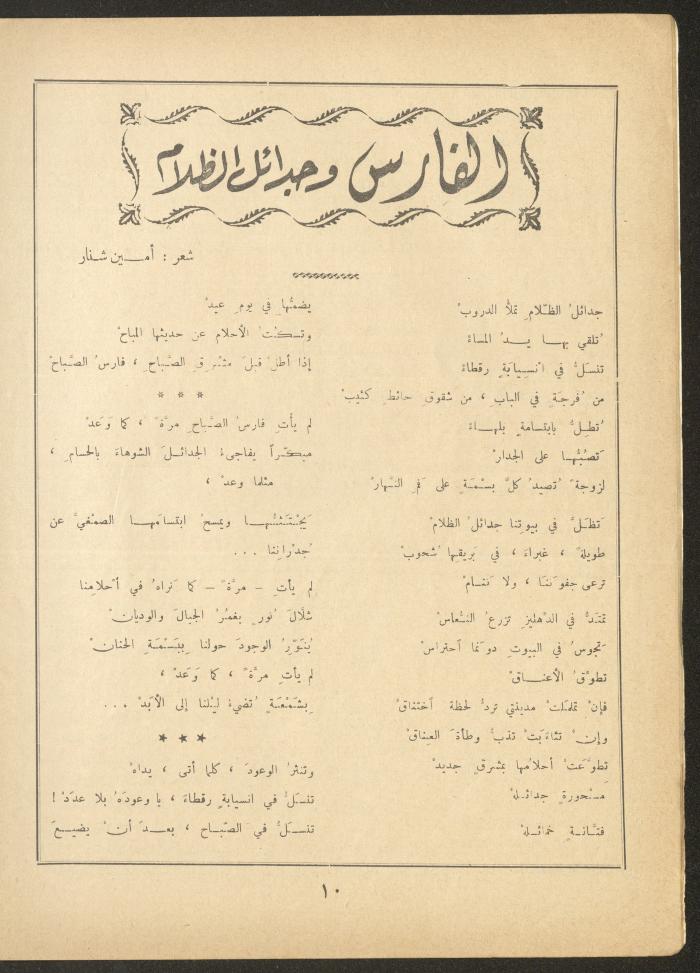 الفارس وجدائل الظلام
شعر : أمــين شنار
جدائلُ الظّلامِ تملأُ الدروبْ
تُلقي بهـا يــدُ المساءْ
تنسَلُّ في انْسِيابَةٍ رقطاءْ
من فُرجَةٍ في البابِ ، من شقوقِ حائطٍ كئيبْ
تُطِــلُّ بابتسامةٍ بلهــاءْ
تَصُبُّهـا على الجدارْ
لزوجةً تُصيدُ كلَّ بسْمَةٍ على فمِ النَّهارْ
تَظَــلُّ في بيوتِنا جدائلُ الظلامْ
طويلةً ، غبراءَ ، في بَريقِها شُحوبْ
ترعى جفونَنا ، ولا تنــامْ
تمتَدُّ في الدّهليزِ تزرعُ النُّعاسْ
تَجوسُ في البيوتِ دونَما احتراسْ
تطوِّقُ الأعنــاقْ
فإنْ تملمَلتْ مدينتي تردُّ لحظةَ اختناقْ
وإنْ تثاءَبَتْ تذبُّ وطأةَ العِناقْ
تطوَّعَتْ أحلامُها بمشرقٍ جديدْ
مسْحورةٍ جدائلُـهْ
فتّـانةٍ خمائلُـهْ
يضمُّها في يومِ عيدْ
وتسكتُ الأحلام عن حديثها المباحْ
إذا أطلّ قبلَ مشْرِقِ الصَّباحِ ، فارسُ الصَّباحْ
* * *
لم يأتِ فارسُ الصَّباحِ مرَّةً ، كما وَعَدْ
مبكّراً يفاجىءُ الجدائـلَ الشوهاءَ بالحسامِ ،
مثلما وعدْ ،
يَجْتَثُّهــا ويمسحُ ابتسامَهــا الصمْغيَّ عن
جُدْرانِنا ...
لم يأتِ – مرَّةً – كما نَراهُ في أحْلامِنا
شلّالَ نُورٍ يغمُرُ الجبالَ والوديانْ
يُنَوِّرُ الوجودَ حولنا بِبَسْمَةِ الحنانْ
لم يأتِ مرَّةً ، كما وَعَدْ ،
بِشَمْعَةٍ تُضيءُ ليْلنا إلى الأبَدْ ...
* * *
وتنثرُ الوعودَ ، كلما أتى ، يداهْ
تنسَلُّ في انسيابةٍ رقطاءَ ، يا وعودَهُ بلا عدَدْ !
تنسَـلُّ في الصّبـاح ، بعـدَ أنْ يضيـعَ
١٠